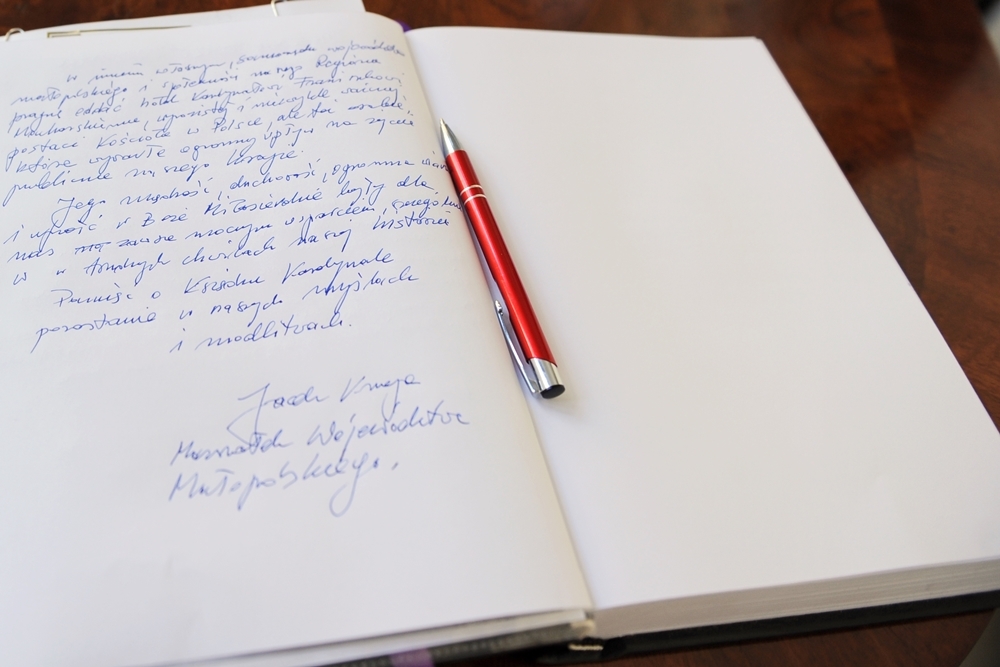 W imieniu własnym, Samorządu województwa
małopolskiego i społeczności naszego Regionu
pragnę oddać hołd Kardynałowi Franciszkowi
Macharskiemu, wyrazistej i niezwykle ważnej
postaci Kościoła w Polsce, ale też osobie,
która wywarła ogromny wpływ na życie
publiczne naszego kraju.
Jego mądrość, duchowość, ogromna wiara
i ufność w Boże Miłosierdzie były dla
nas zawsze mocnym wsparciem,
w trudnych chwilach naszej historii
Pamięć o Księdzu Kardynale
pozostanie w naszych myślach
i modlitwach.
Jacek Krupa
Marszałek Województwa
Małopolskiego.